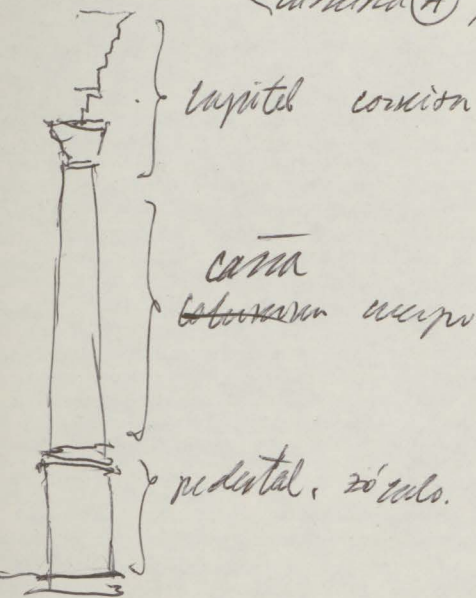 (A)
capitel cornisa
caña
columna cuerpo
pedestal, zócalo.